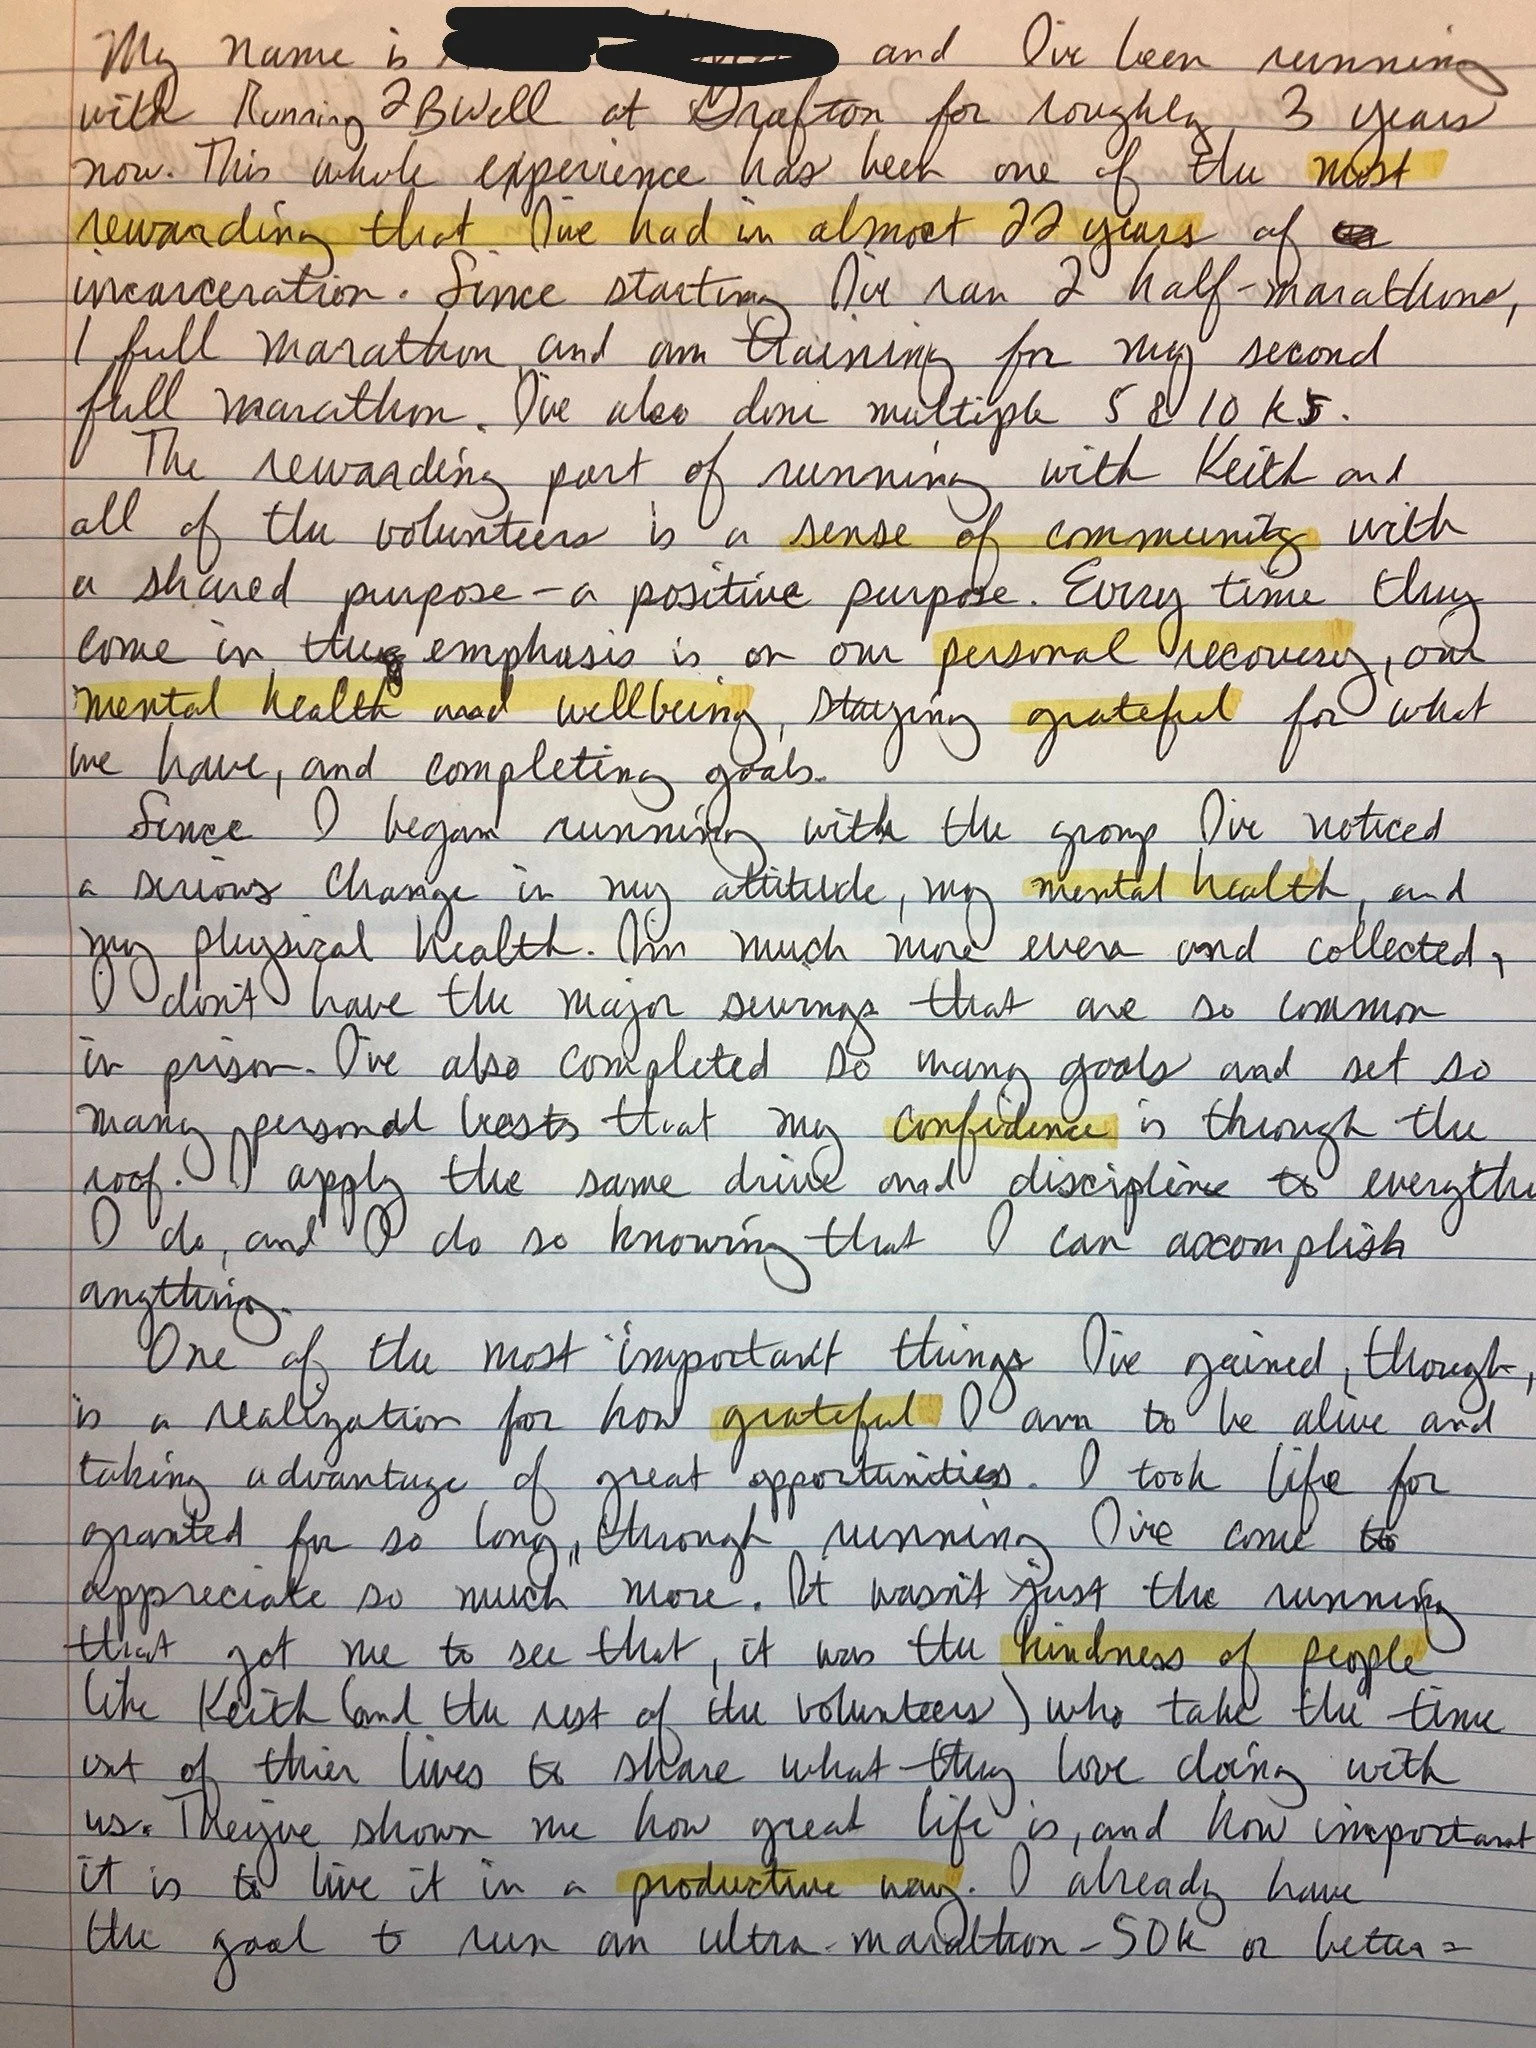 My name is and I've been running
with Running 2BWell at Grafton for roughly 3 years
now. This whole experience has been one of the most
rewarding that I've had in almost 22 years of
incarceration. Since starting I've ran 2 half-marathons,
1 full marathon and am training for my second
full marathon. I've also done multiple 5 & 10 ks.
The rewarding part of running with Keith and
all of the volunteers is a sense of community with
a shared purpose - a positive purpose. Every time they
come in the emphasis is on our personal recovery, our
mental health and wellbeing, staying grateful for what
we have, and completing goals.
Since I began running with the group I've noticed
a serious change in my attitude, my mental health, and
my physical health. I'm much more even and collected,
I don't have the major swings that are so common
in prison. I've also completed so many goals and set so
many personal bests that my confidence is through the
roof. I apply the same drive and discipline to everythi
I do, and I do so knowing that I can accomplish
anything.
One of the most important things I've gained, though,
is a realization for how grateful I am to be alive and
taking advantage of great opportunities. I took life for
granted for so long, through running I've come to
appreciate so much more. It wasn't just the running
that got me to see that, it was the kindness of people
like Keith (and the rest of the volunteers) who take the time
out of thier lives to share what they love doing with
us. They've shown me how great life is, and how important
it is to live it in a productive way. I already have
the goal to run an ultra-marathon - 50k or better -